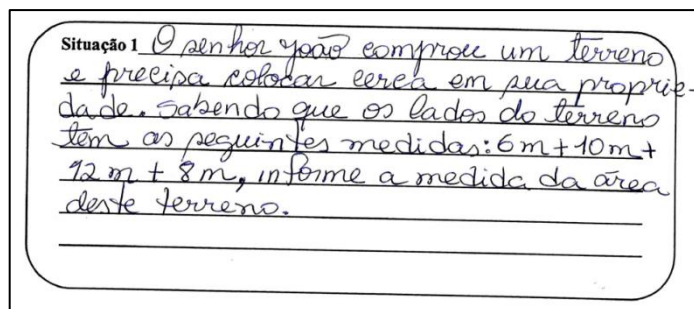 Situação 1 O senhor joão comprou um terreno
e precisa colocar cerca em sua proprie-
dade. Sabendo que os lados do terreno
tem as seguintes medidas: 6m + 10m +
12m + 8m, informe a medida da área
deste terreno.